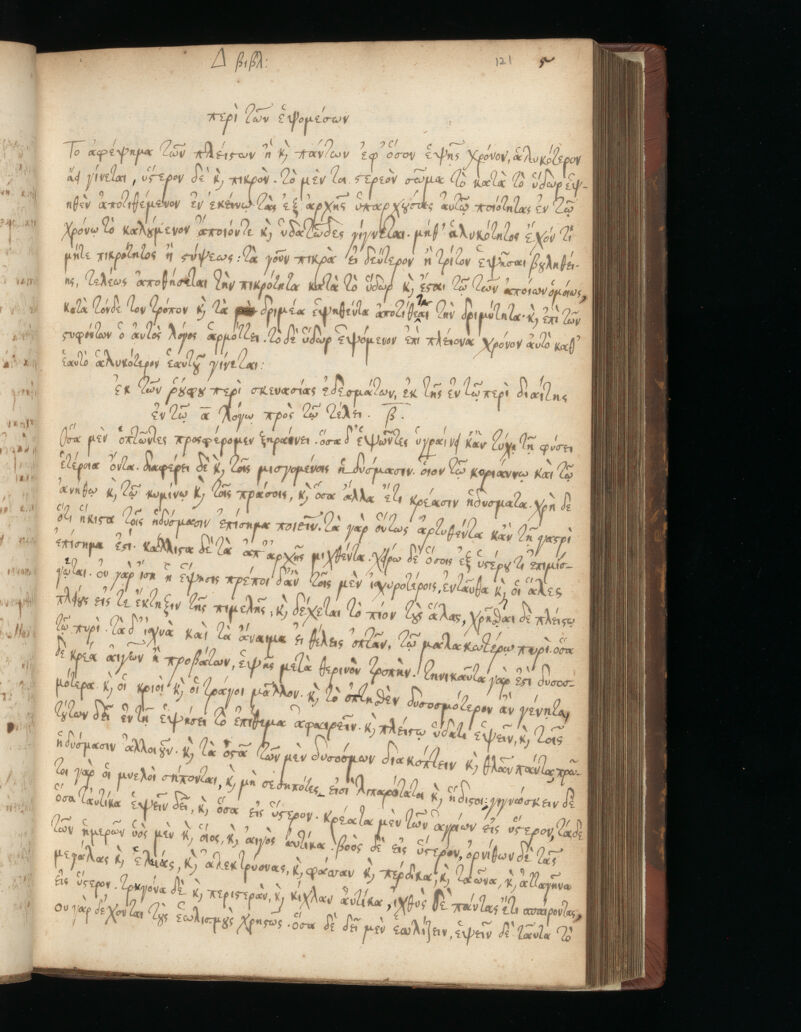 Δ βιβλ:
121 5
περὶ τῶν ἑψομένων
Το ἀφέψημα τῶν πλείστων ἢ κ̀ πάντων ἐφ' ὅσον ἑψῇς χρόνον, ἁλυκότερον
ἀεὶ γίνεται, ὕστερον δὲ κ̀ πικρὸν. τὸ μὲν τοι στερεὸν σῶμα τὸ κατὰ τὸ ὕδωρ ἑψ-
ηθὲν ἀποτιθέμενον ἐν ἐκείνῳ τὰς ἐξ ἀρχῆς ὑπαρχούσας αὐτῷ ποιότητας ἐν τῷ
χρόνῳ τὸ καλούμενον ἄποιόντε κ̀ ὑδατῶδες γίγνεται. μήθ' ἁλυκότητος ἔχόν τί
μήτε πικρότητος ἢ στύψεως: τὰ γοῦν πικρὰ εἰ δεύτερον ἢ τρίτον ἑψῆσαι βουληθεί-
ης, τελέως ἀποθήσεται τὴν πικρότητα κατὰ τὸ ὕδωρ κ̀ ἔσται τῷ τῶν ἀποίων ὁμοίως,
κατὰ τόνδε τον τρόπον κ̀ τὰ δριμέα ἑψηθέντα ἀποτίθεται τὴν δριμύτητα. κ̀ ἐπὶ τῶν
στυφόντων ὁ αὐτὸς λόγος ἁρμόττει. τὸ δὲ ὕδωρ ἑψόμενον ἐπὶ πλείονα χρόνον αὐτὸ καθ'
ἑαυτὸ ἁλυκότερον ἑαυτοῦ γίνεται:
ἐκ τῶν ῥούφου περὶ σκευασίας ἐδεσμάτων, ἐκ τῆς ἐν τῷ περὶ διαίτης
ἐν τῷ α λόγῳ πρὸς τῷ τέλει. β.
Ὅσα μὲν ὀπτῶντες προσφέρομεν ξηραίνει. ὅσα δ' ἑψῶντες ὑγραίνει κἂν τύχῃ τῇ φύσει
ἑτέροια ὄντα. διαφέρει δὲ κ̀ τοῖς μισγομένοις ἡδύσμασιν. οἷον τῷ κοριάννῳ καὶ τῷ
ἀνήθῳ κ̀ τῷ κυμίνῳ κ̀ τοῖς πράσοις, κ̀ ὅσα ἄλλα ἔτι κρέασιν ἡδύσματα. χρὴ δὲ
ὅτι ἥκιστα τοῖς ἡδύσμασιν ἐπίσημα ποιεῖν. τὰ γὰρ οὕτως ἀρτυθέντα κἂν τῇ γαστρὶ
ἐπίσημα ἐστί. κάλλιστα δὲ τὰ ἀπ' ἀρχῆς μιχθέντα. χείρω δὲ ὅσοις ἐξ ὑστέρου τι ἐπιμίσ-
γεται. οὐ γὰρ ἴση ἡ ἕψησις πρέποι δἂν τοῖς μὲν ἰσχυροτέροις, ἐνταῦθα κ̀ οἱ ἅλες
πλείους εἴς τε ἔκτηξιν τῆς πιμελῆς, κ̀ δέχεται τὸ πῖον τοὺς ἅλας, χρῆσθαι δὲ πλείστῳ
τῷ πυρὶ. τὰ δ' ἰσχνὰ καὶ τὰ ἄναιμα εἰ θέλεις ὀπτᾶν, τῷ μαλακωτέρῳ πυρὶ. ὅσα
δὲ κρέα αἰγῶν ἢ προβάτων, ἑψῇς μετὰ θερινὸν τροπὴν. τηνικαῦτα γὰρ ἐστὶ δυσοσ-
μότερα. κ̀ οἱ κριοὶ κ̀ οἱ τράγοι μᾶλλον. κ̀ τὸ ὀπτηθὲν δυσοσμότερον ἂν γένηται
τούτων δεῖ ἐν τῇ ἑψήσει τὸ ἐπίθεμα ἀφαιρεῖν. κ̀ πλείστῳ ὕδατι ἑψεῖν, κ̀ τοῖς
ἡδύσμασιν ἀλλοιοῦν. κ̀ τὰ ὀστᾶ τῶν μὲν δυσόσμων διακόπτειν κ̀ θλᾶν πάντας πρῶ-
τοι γὰρ οἱ μυελοὶ σήπονται, κ̀ μὴ σεσηπότες εἰσὶ λιπαρώτατοι κ̀ ἥδιστοι: γιγνώσκειν δὲ
ὅσα ταὐτίκα ἑψεῖν δεῖ, κ̀ ὅσα εἰς ὕστερον. κρέατα μὲν τῶν ἀγρίων εἰς ὕστερον, τὰ δὲ
τῶν ἡμερῶν ὑὸς μὲν κ̀ ὄιος, κ̀ αἰγὸς αὐτίκα. βοὸς δὲ εἰς ὕστερον, ὀρνίθων δὲ τὰς
μεγάλας κ̀ ἑλείας, κ̀ ἀλεκτρύονας, κ̀ φάσσαν κ̀ πέρδικα, κ̀ ταῶνα, κ̀ ἀτταγῆνα
εἰς ὕστερον. τρυγόνα δὲ κ̀ περιστερὰν, κ̀ κίχλαν αὐτίκα, ἰχθὺς δὲ πάντας ἔτι ἀσπαίροντας,
οὐ γὰρ δέχονται τοὺς ἑωλισμοὺς χρηστῶς. ὅσα δὲ δεῖ μὲν ἑωλίζειν, ἑψεῖν δὲ ταῦτα τὸ